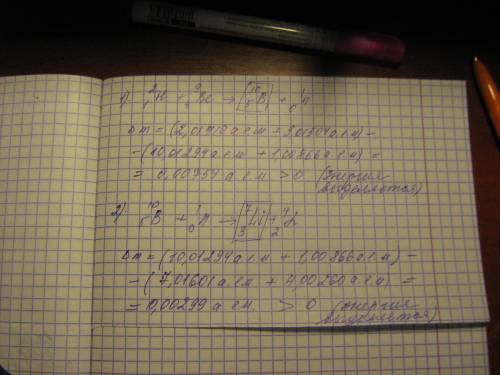 1) ²₁H + ⁹₄Be → [¹⁰₅B] + ¹₀n
Δm = (2,01410 а.е.м + 9,01604 а.е.м) -
- (10,01294 а.е.м + 1,00866 а.е.м) =
= 0,00854 а.е.м > 0 (энергия выделяется)
2) ¹⁰₅B + ¹₀n → [⁷₃Li] + ⁴₂α
Δm = (10,01294 а.е.м + 1,00866 а.е.м) -
- (7,01601 а.е.м + 4,00260 а.е.м) =
= 0,00299 а.е.м. > 0 (энергия выделяется)